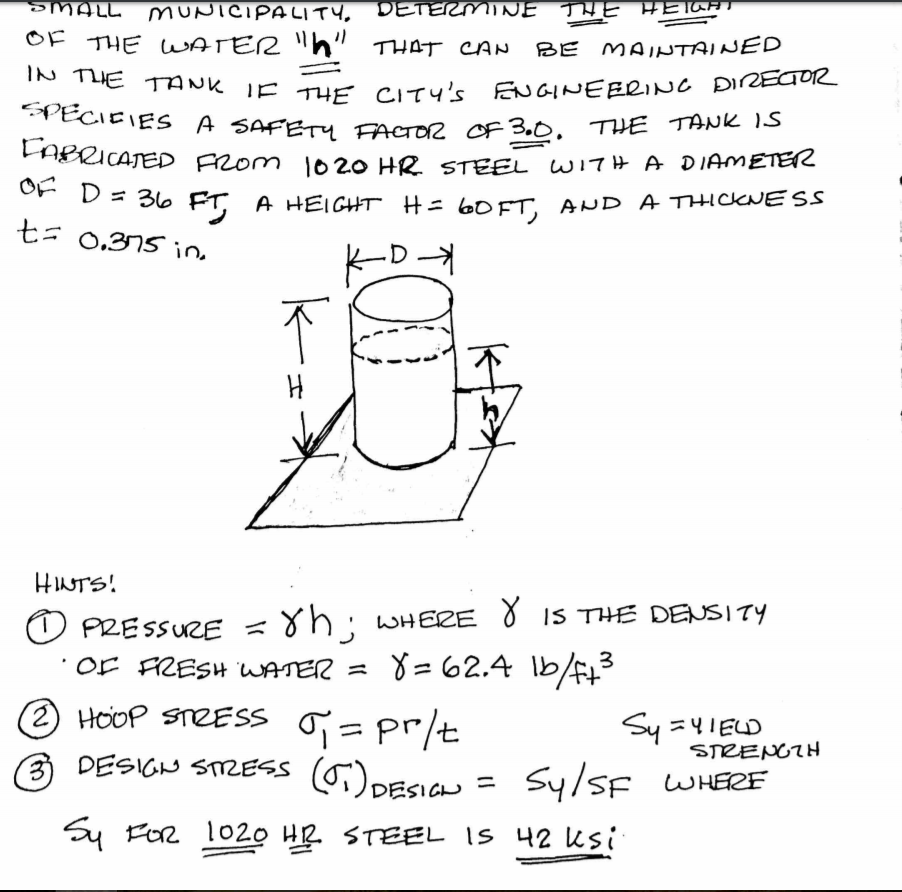 SMALL MUNICIPALITY. DETERMINE THE HEIGHT
OF THE WATER "h" THAT CAN BE MAINTAINED
IN THE TANK IF THE CITY'S ENGINEERING DIRECTOR
SPECIFIES A SAFETY FACTOR OF 3.0. THE TANK IS
FABRICATED FROM 1020 HR STEEL WITH A DIAMETER
OF D = 36 FT, A HEIGHT H = 60 FT, AND A THICKNESS
t = 0.375 in.
D
H
h
HINTS!
① PRESSURE = γh; WHERE γ IS THE DENSITY
OF FRESH WATER = γ = 62.4 lb/ft³
② HOOP STRESS σ₁ = pr/t
Sy = YIELD
STRENGTH
③ DESIGN STRESS (σ₁)DESIGN = Sy/SF WHERE
Sy FOR 1020 HR STEEL IS 42 ksi